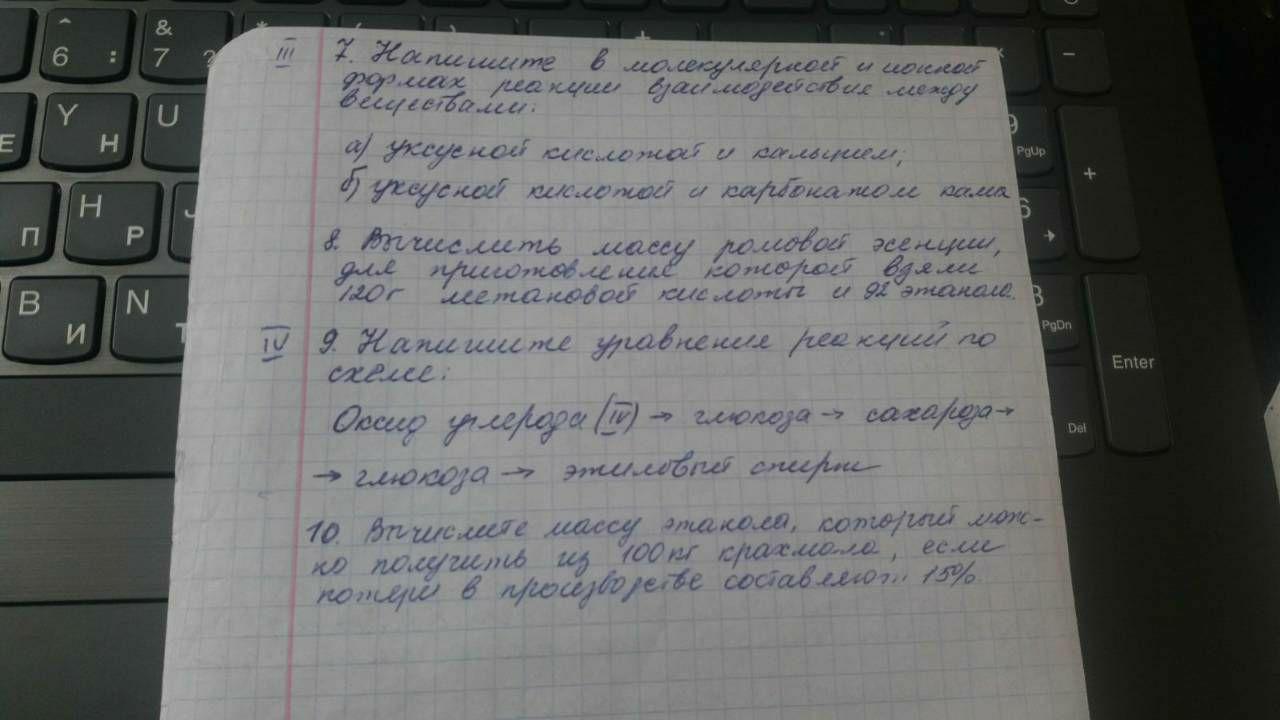 III 7. Напишите в молекулярной и ионной
формах реакции взаимодействие между
веществами:
а) уксусной кислотой и кальцием;
б) уксусной кислотой и карбонатом кали
8. Вычислить массу ромовой эсенции,
для приготовление которой взяли
120г метановой кислоты и 92 этанола.
IV 9. Напишите уравнение реакций по
схеме:
Оксид углерода (IV) → глюкоза → сахароза →
→ глюкоза → этиловый спирт
10. Вычислите массу этанола, который мож-
но получить из 100кг крахмала, если
потери в производстве составляют 15%.
6 :
& 7 ?
E
Y Н
U
П
H Р
В И
N Т
+
-
9 PgUp
6
3 PgDn
Del
Enter